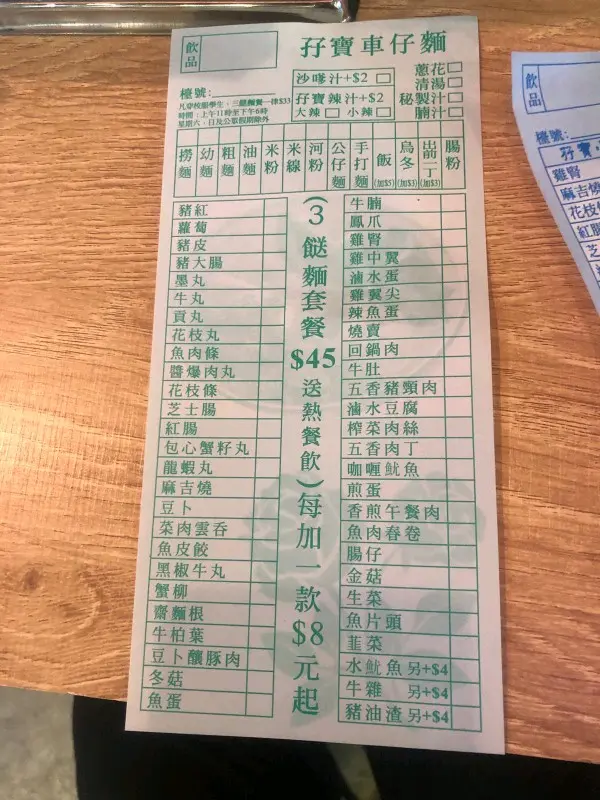 飲品
孖寶車仔麵
沙嗲汁+$2
孖寶辣汁+$2
大辣 小辣
蔥花
清湯
秘製汁
腩汁
檯號:
凡穿校服學生，三餸麵餐一律$33
時間：上午11時至下午6時
星期六、日及公眾假期除外
撈麵 幼麵 粗麵 油麵 米粉 米線 河粉 公仔麵 手打麵 飯(加$5) 烏冬(加$3) 出前一丁(加$3) 腸粉
豬紅
蘿蔔
豬皮
豬大腸
墨丸
牛丸
貢丸
花枝丸
魚肉條
醬爆肉丸
花枝條
芝士腸
紅腸
包心蟹籽丸
龍蝦丸
麻吉燒
豆卜
菜肉雲吞
魚皮餃
黑椒牛丸
蟹柳
齋麵根
牛柏葉
豆卜釀豚肉
冬菇
魚蛋
(3餸麵套餐$45送熱餐飲)每加一款$8元起
牛腩
鳳爪
雞腎
雞中翼
滷水蛋
雞翼尖
辣魚蛋
燒賣
回鍋肉
牛肚
五香豬頸肉
滷水豆腐
榨菜肉絲
五香肉丁
咖喱魷魚
煎蛋
香煎午餐肉
魚肉春卷
腸仔
金菇
生菜
魚片頭
韮菜
水魷魚 另+$4
牛雜 另+$4
豬油渣 另+$4
飲品
檯號:
孖寶
雞腎
麻吉燒
花枝
紅腸
芝